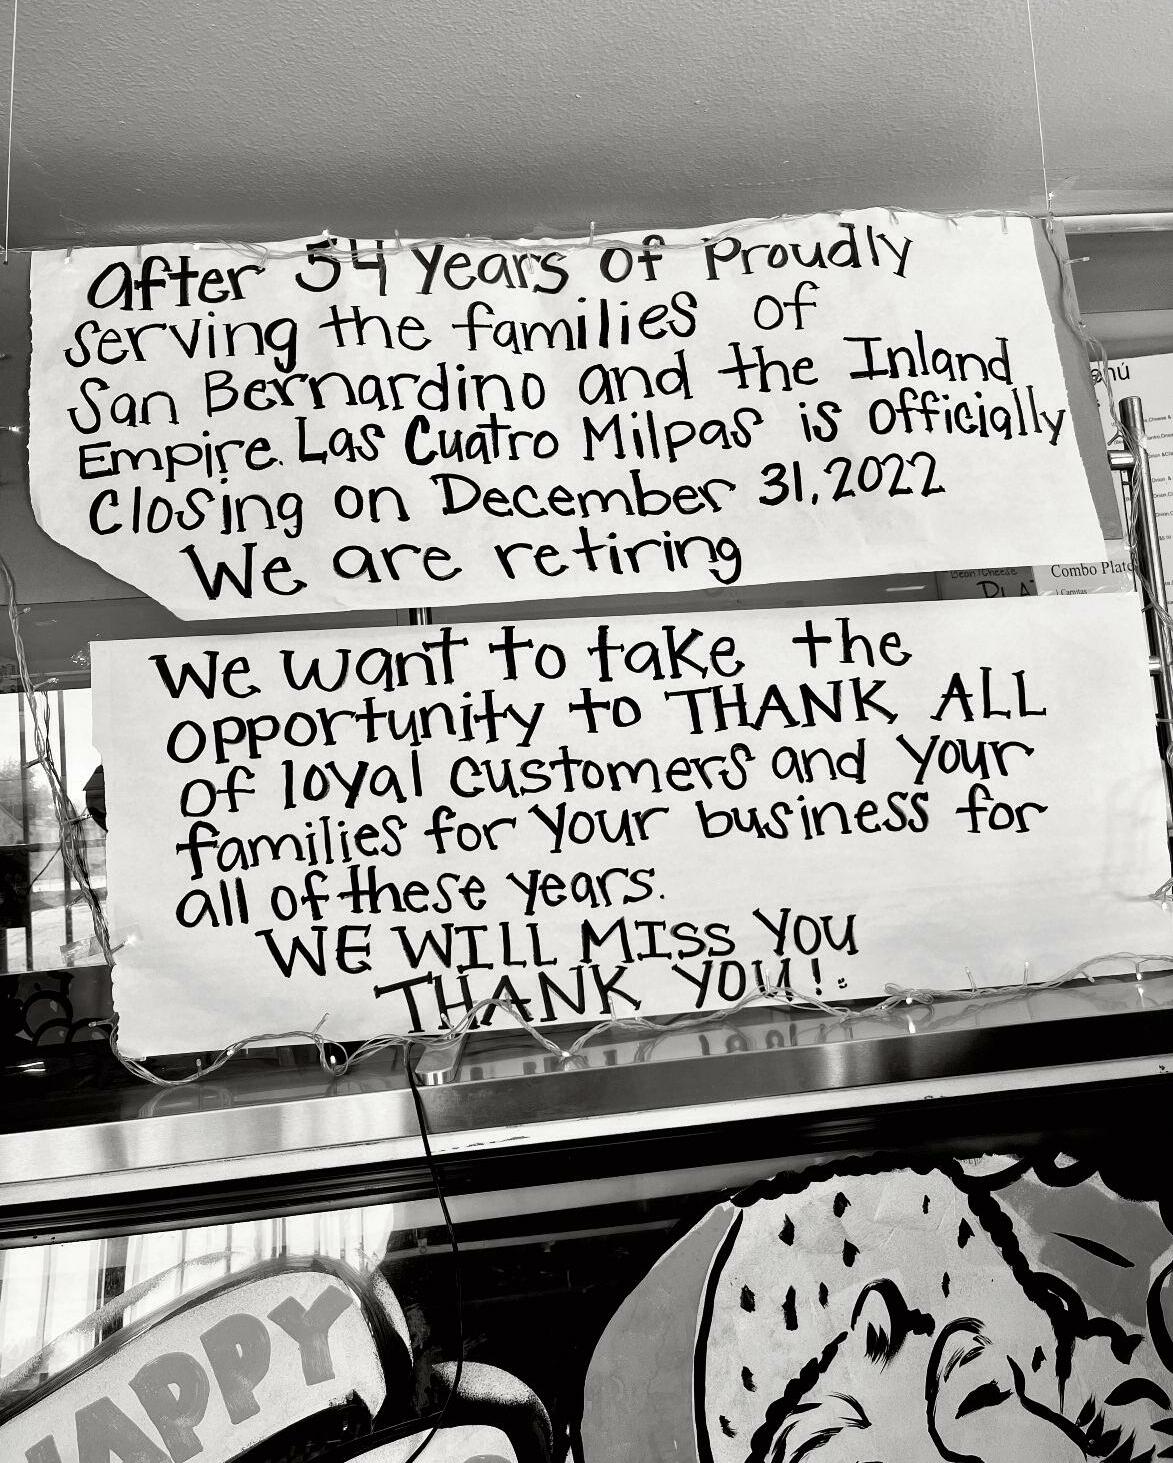 After 54 years of Proudly
serving the families of
San Bernardino and the Inland
Empire. Las Cuatro Milpas is officially
Closing on December 31, 2022
We are retiring
We want to take the
opportunity to THANK ALL
of loyal customers and your
families for your business for
all of these years.
WE WILL MISS YOU
THANK YOU!
Combo Plato
HAPPY